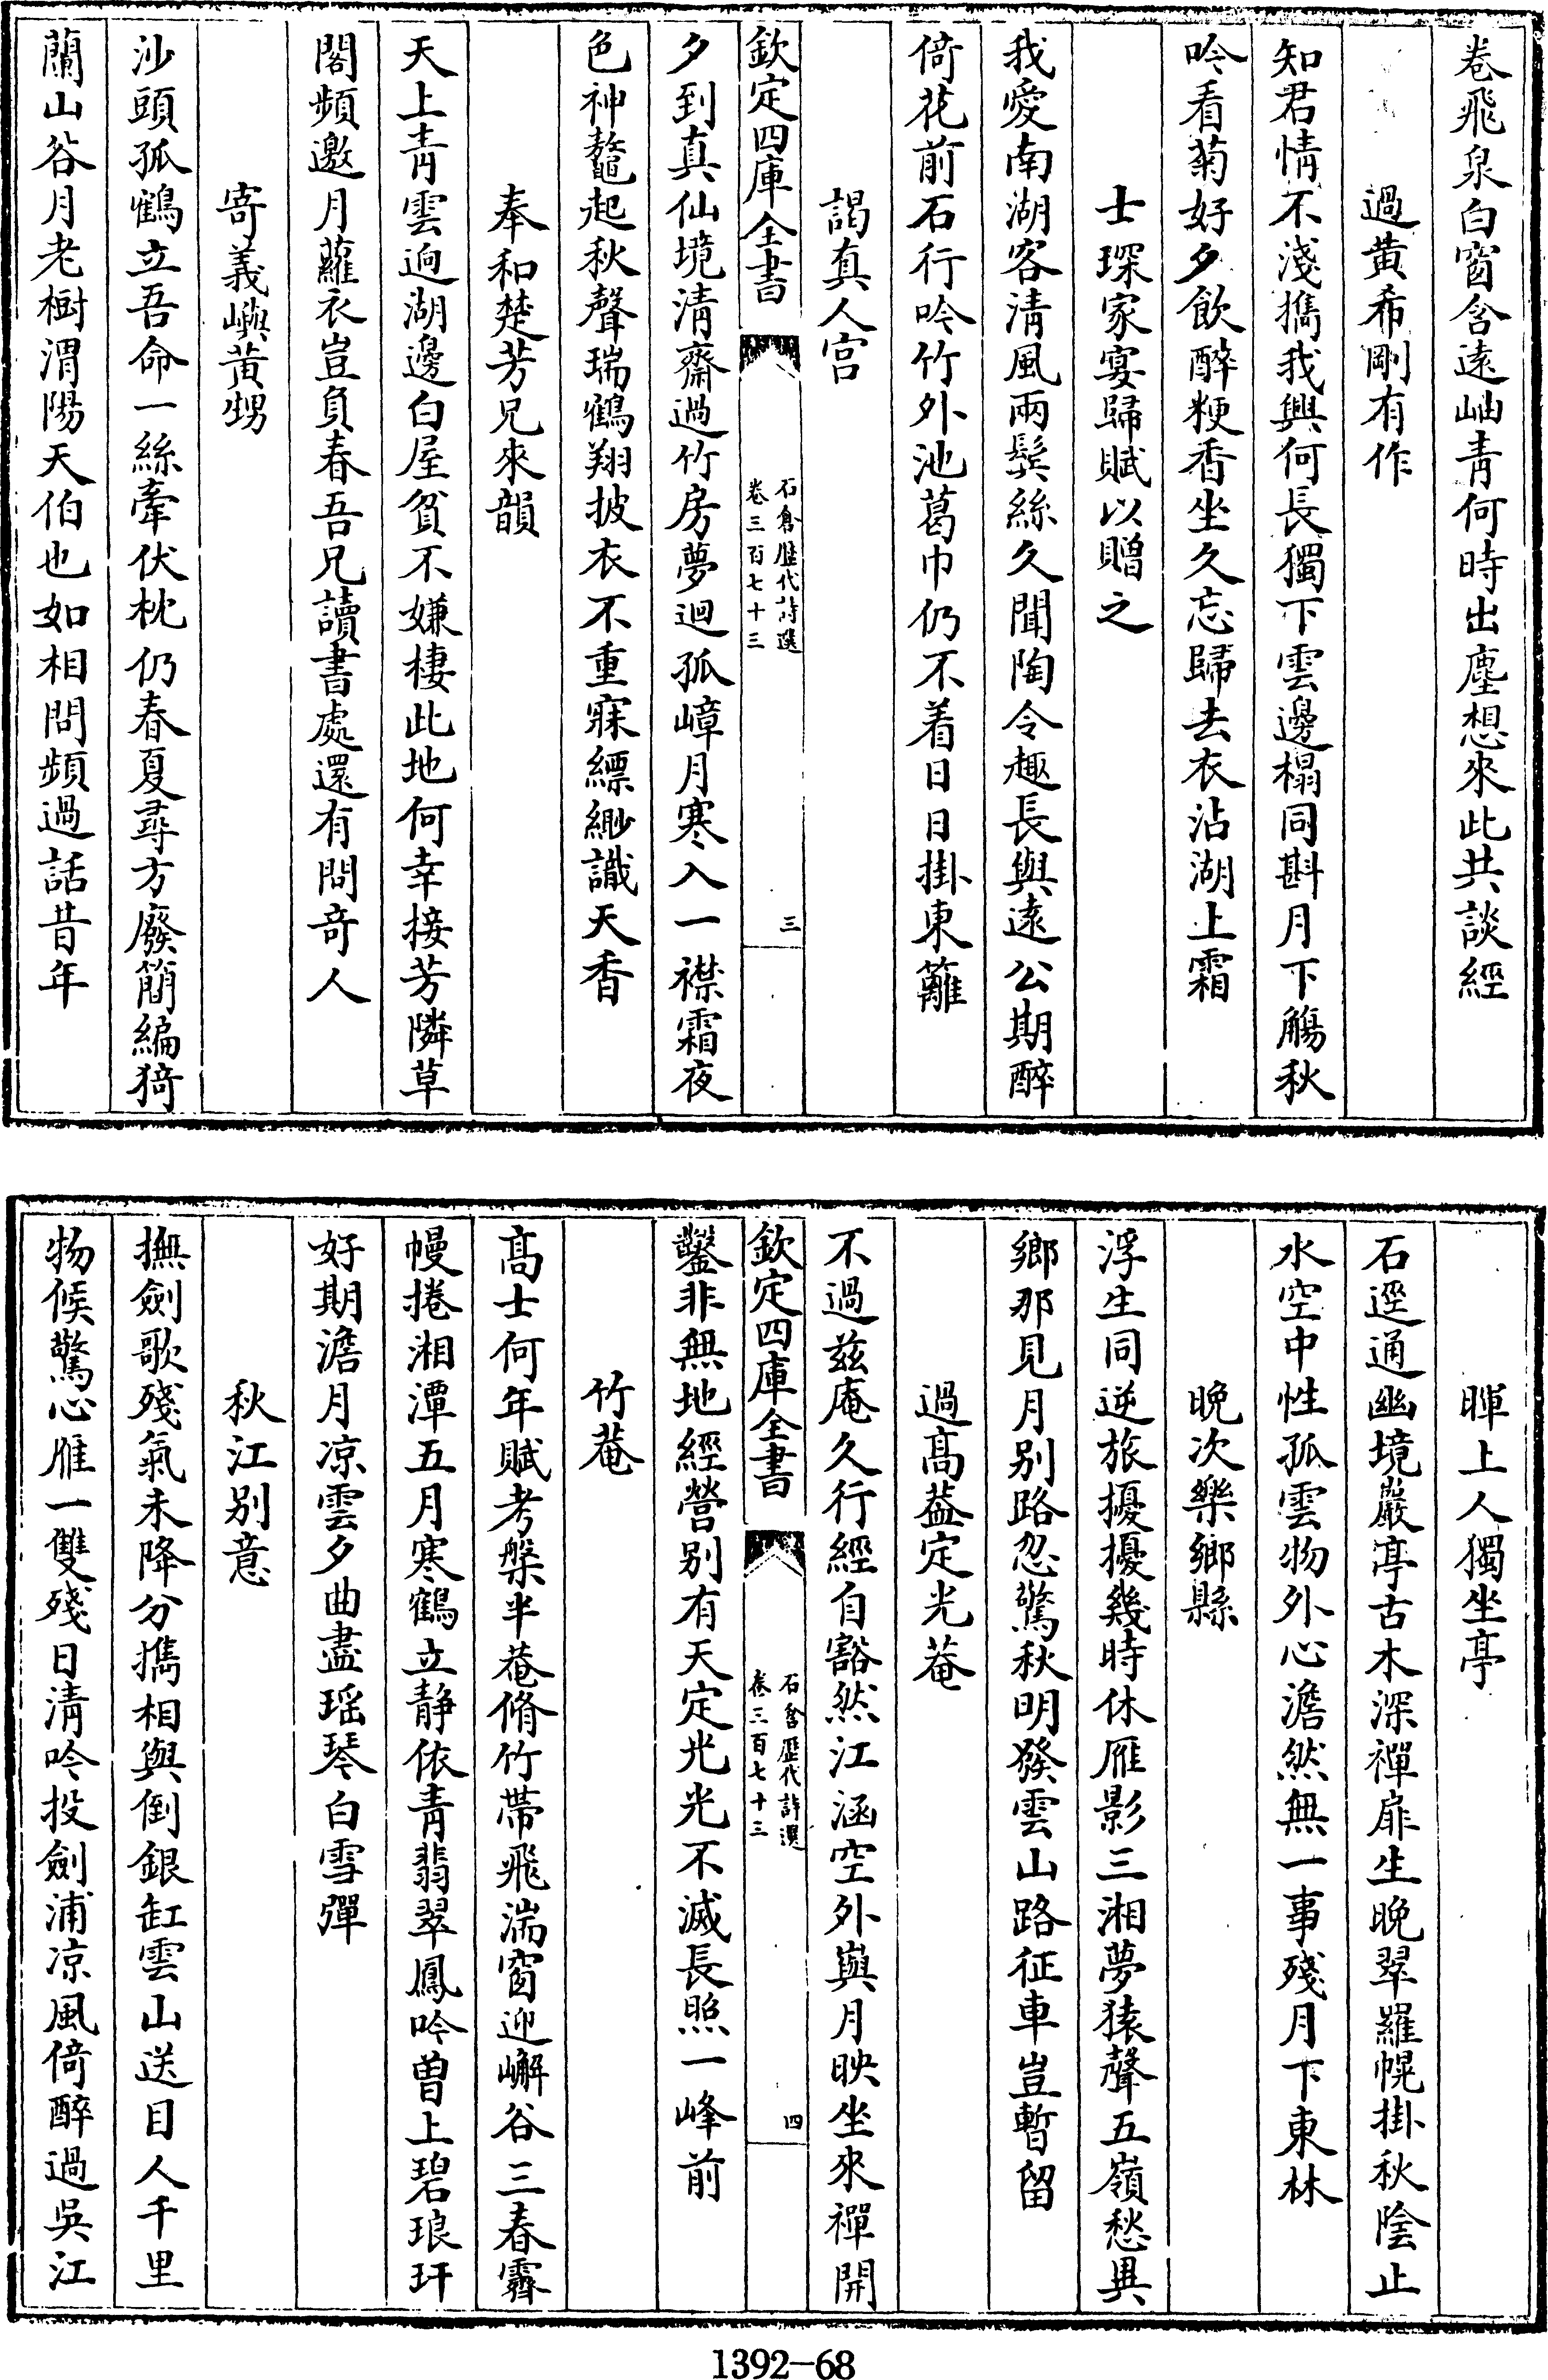 卷飛泉白窗含遠岫青何時出塵想來此共談經
過黄希剛有作
知君情不淺攜我興何長獨下雲邊榻同斟月下觴秋
吟看菊好夕飲醉粳香坐久忘歸去衣沾湖上霜
士琛家宴歸賦以贈之
我愛南湖客清風兩鬂絲久聞陶令趣長與遠公期醉
倚花前石行吟竹外池葛巾仍不着日日掛東籬
謁真人宫
欽定四庫全書
石倉歴代詩選
卷三百七十三
三
夕到真仙境清齋過竹房夢迴孤嶂月寒入一襟霜夜
色神鼇起秋聲瑞鶴翔披衣不重寐縹緲識天香
奉和楚芳兄來韻
天上青雲逈湖邊白屋貧不嫌棲此地何幸接芳隣草
閣頻邀月蘿衣豈負春吾兄讀書處還有問竒人
寄義嶼黄甥
沙頭孤鶴立吾命一絲牽伏枕仍春夏尋方廢簡編猗
蘭山谷月老樹渭陽天伯也如相問頻過話昔年
暉上人獨坐亭
石逕通幽境巖亭古木深禪扉生晚翠羅幌掛秋陰止
水空中性孤雲物外心澹然無一事殘月下東林
晚次樂鄉縣
浮生同逆旅擾擾幾時休雁影三湘夢猿聲五嶺愁異
鄉那見月别路忽驚秋明發雲山路征車豈暫留
過髙葢定光菴
不過兹庵久行經自豁然江涵空外與月映坐來禪開
鑿非無地經營别有天定光光不滅長照一峰前
欽定四庫全書
石倉歴代詩選
卷三百七十三
四
竹菴
髙士何年賦考槃半菴脩竹帶飛湍窗迎嶰谷三春霽
幔捲湘潭五月寒鶴立静依青翡翠鳳吟曽上碧琅玕
好期澹月凉雲夕曲盡瑶琴白雪彈
秋江别意
撫劍歌殘氣未降分攜相與倒銀缸雲山送目人千里
物候驚心雁一雙殘日清吟投劍浦凉風倚醉過吳江
1392-68